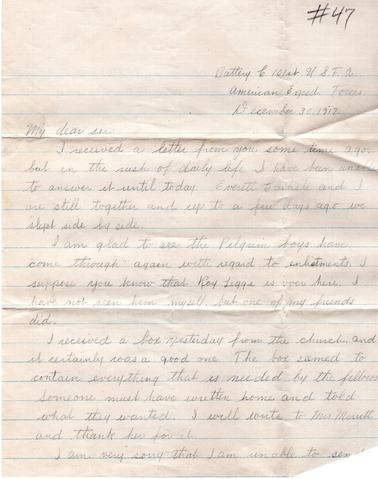 #47
Battery C 101st U S F A
American Exped. Forces
December 30, 1917.
My dear sir:
I received a letter from you some time ago,
but in the rush of daily life I have been unable
to answer it until today. Everett and I
are still together and up to a few days ago we
slept side by side.
I am glad to see the Pilgrim boys have
come through again with regard to enlistments. I
suppose you know that Roy Legge is over here. I
have not seen him myself, but one of my friends
did.
I received a box yesterday from the church, and
it certainly was a good one. The box samed to
contain everything that is needed by the fellows
Someone must have written home and told
what they wanted. I will write to Mrs Merritt
and thank her for it.
I am very sorry that I am unable to send